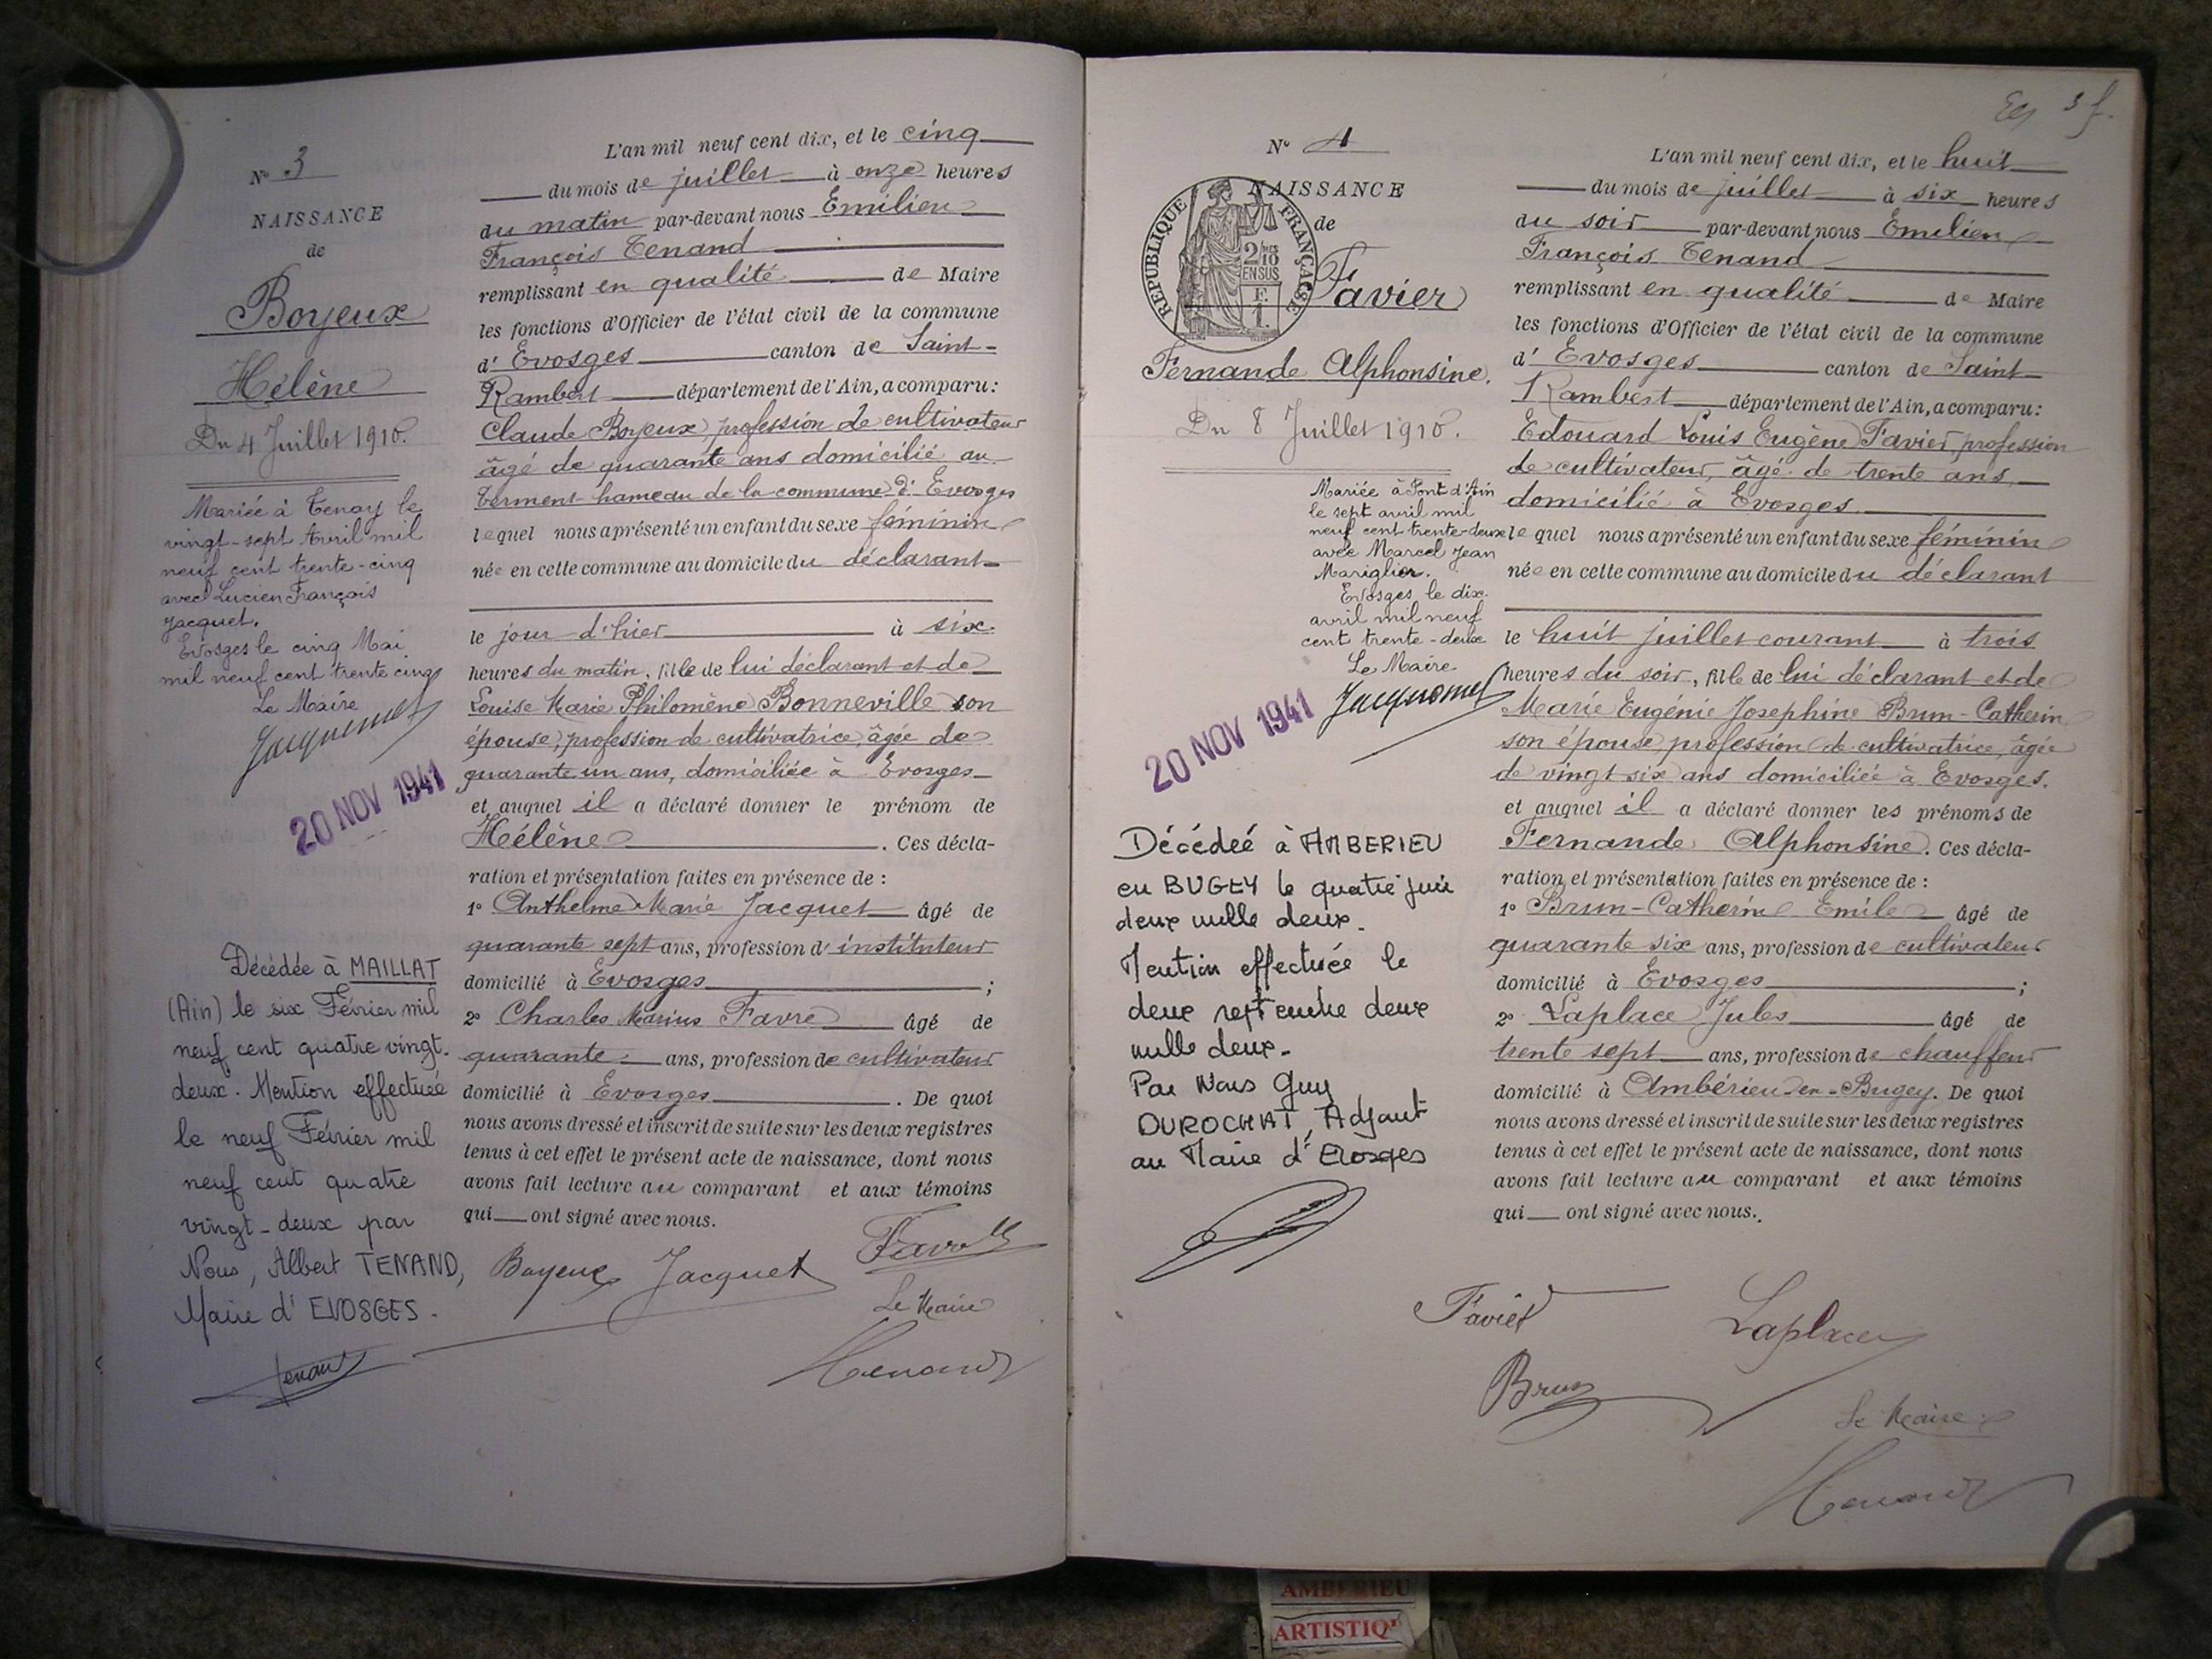 N° 3
NAISSANCE
de
Boyeux
Hélène
Du 4 Juillet 1910.
Mariée à Tenay le
vingt-sept Avril mil
neuf cent trente-cinq
avec Lucien François
Jacquet.
Evosges le cinq Mai
mil neuf cent trente cinq
Le Maire
Jacquemet
20 NOV 1941
Décédée à MAILLAT
(Ain) le six Février mil
neuf cent quatre vingt-
deux. Mention effectuée
le neuf Février mil
neuf cent quatre
vingt-deux par
Nous, Albert TENAND,
Maire d'EVOSGES.
Tenand
L'an mil neuf cent dix, et le cinq
du mois de juillet à onze heures
du matin par-devant nous Emilien
François Tenand
remplissant en qualité de Maire
les fonctions d'Officier de l'état civil de la commune
d'Evosges canton de Saint-
Rambert département de l'Ain, a comparu:
Claude Boyeux, profession de cultivateur
âgé de quarante ans domicilié au
hameau de la commune d'Evosges
lequel nous a présenté un enfant du sexe féminin
née en cette commune au domicile du déclarant
le jour d'hier à six
heures du matin, fille de lui déclarant et de
Louise Marie Philomène Bonneville son
épouse, profession de cultivatrice, âgée de
quarante un ans, domiciliée à Evosges
et auquel il a déclaré donner le prénom de
Hélène. Ces décla-
ration et présentation faites en présence de :
1° Anthelme Marie Jacquet âgé de
quarante sept ans, profession d'instituteur
domicilié à Evosges ;
2° Charles Marius Favre âgé de
quarante ans, profession de cultivateur
domicilié à Evosges. De quoi
nous avons dressé et inscrit de suite sur les deux registres
tenus à cet effet le présent acte de naissance, dont nous
avons fait lecture au comparant et aux témoins
qui ont signé avec nous.
Boyeux Jacquet Favre
Le Maire
Tenand
3 f.
N° 4
NAISSANCE
de
REPUBLIQUE FRANÇAISE
2/10 EN SUS
F.
1.
Favier
Fernande Alphonsine.
Du 8 Juillet 1910.
Mariée à Pont d'Ain
le sept avril mil
neuf cent trente-deux
avec Marcel Jean
Mariglier.
Evosges le dix
avril mil neuf
cent trente-deux
Le Maire
Jacquemet
20 NOV 1941
Décédée à AMBERIEU
en BUGEY le quatre juin
deux mille deux.
Mention effectuée le
deux septembre deux
mille deux.
Par Nous Guy
DUROCHAT, Adjoint
au Maire d'Evosges
L'an mil neuf cent dix, et le huit
du mois de juillet à six heures
du soir par-devant nous Emilien
François Tenand
remplissant en qualité de Maire
les fonctions d'Officier de l'état civil de la commune
d'Evosges canton de Saint-
Rambert département de l'Ain, a comparu:
Edouard Louis Eugène Favier, profession
de cultivateur, âgé de trente ans,
domicilié à Evosges
lequel nous a présenté un enfant du sexe féminin
née en cette commune au domicile du déclarant
le huit juillet courant à trois
heures du soir, fille de lui déclarant et de
Marie Eugénie Josephine Brun-Catherin
son épouse, profession de cultivatrice, âgée
de vingt six ans domiciliée à Evosges.
et auquel il a déclaré donner les prénoms de
Fernande Alphonsine. Ces décla-
ration et présentation faites en présence de :
1° Brun-Catherin Emile âgé de
quarante six ans, profession de cultivateur
domicilié à Evosges ;
2° Laplace Jules âgé de
trente sept ans, profession de chauffeur
domicilié à Ambérieu-en-Bugey. De quoi
nous avons dressé et inscrit de suite sur les deux registres
tenus à cet effet le présent acte de naissance, dont nous
avons fait lecture au comparant et aux témoins
qui ont signé avec nous.
Favier Laplace
Brun
Le Maire
Tenand
AMBERIEU
ARTISTIQ